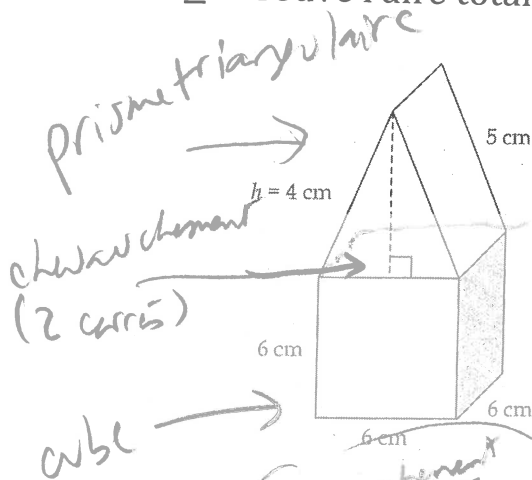 prisme triangulaire
5 cm
h = 4 cm
chevauchement
(2 carrés)
6 cm
6 cm
cube
6 cm